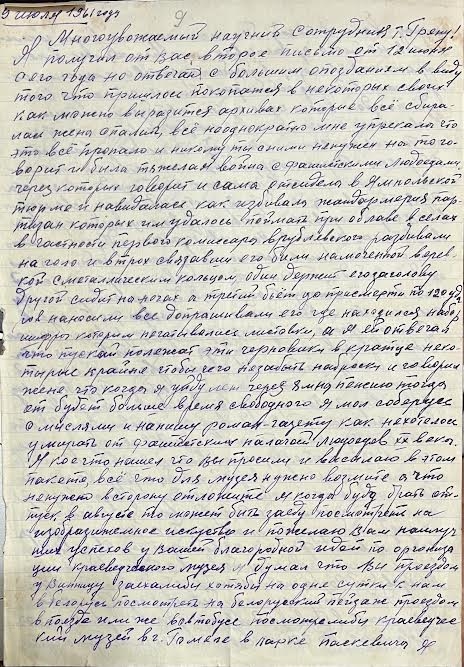 5 июля 1961 года
9
Многоуважаемый научный сотрудник т. Грену!
Я получил от Вас второе письмо от 12 июня
с его года но отвечаю с большим опозданием в виду
того что пришлось покопатся в некоторых своих
как можно выразится архивах которые всё сбира-
лась жена спалить, всё неоднократно мне упрекала что
это всё пропало и никому ты с ними ненужен на то го-
ворит и была тяжелая война с фашистскими людоедами,
через которых говорит и сама отсидела в Ямпольской
тюрме и навидалась как избивала жандармерия пар-
тизан которых им удалось поймать при облаве в селах
в частности первого комиссара Врублевского раздивали
на голо и в трох связавши его били намоченной верев-
кой с металлическим кольцом, один держит его за голову
другой сидит на ногах а третий бьёт до присмерти по 120 уда-
ров наносили все допрашивали его где находился набор
шрифта которим печатывались листовки, а я ей отвечал
что пускай полежат эти черновики в кратце неко-
тырые крайне чтобы чего незабыть наброски и говорил
жене, что когда я уйду лет через на пенсию тогда
от будет больше время свободного я мол соберусь
с мыслями и напишу роман-газету как нехотелось
умирать от фашистских палачей людоедов ХХ века.
Я кое что нашел что Вы просили и высилаю в этом
пакете, всё что для музея нужно возмите а что
ненужно в сторону отложите я когда буду брать от-
пуск в августе то может быть заеду посмотреть на
изобразительное искуство и пожелаю Вам наилуч-
ших успехов у Вашей благородной идеи по организа-
ции краеведческого музея. Я думал что Вы проездом
у Винницу заехалиби хотябы на одне сутки с нам
в Белорусь посмотреть на белорусский пейзаж проездом
в поезде или же в автобусе посмотрелибы краеведчес-
кий музей в г. Гомеле в парке Паскевича